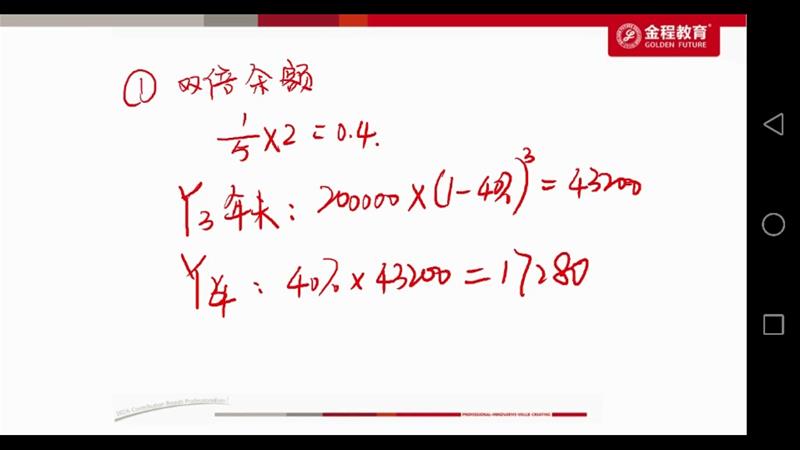 金程教育
GOLDEN FUTURE
① 双倍余额
1/5 × 2 = 0.4.
Y3 年末: 200000 × (1-40%)³ = 43200
Y4: 40% × 43200 = 17280
PROFESSIONAL·INNOVATIVE·VALUE CREATING